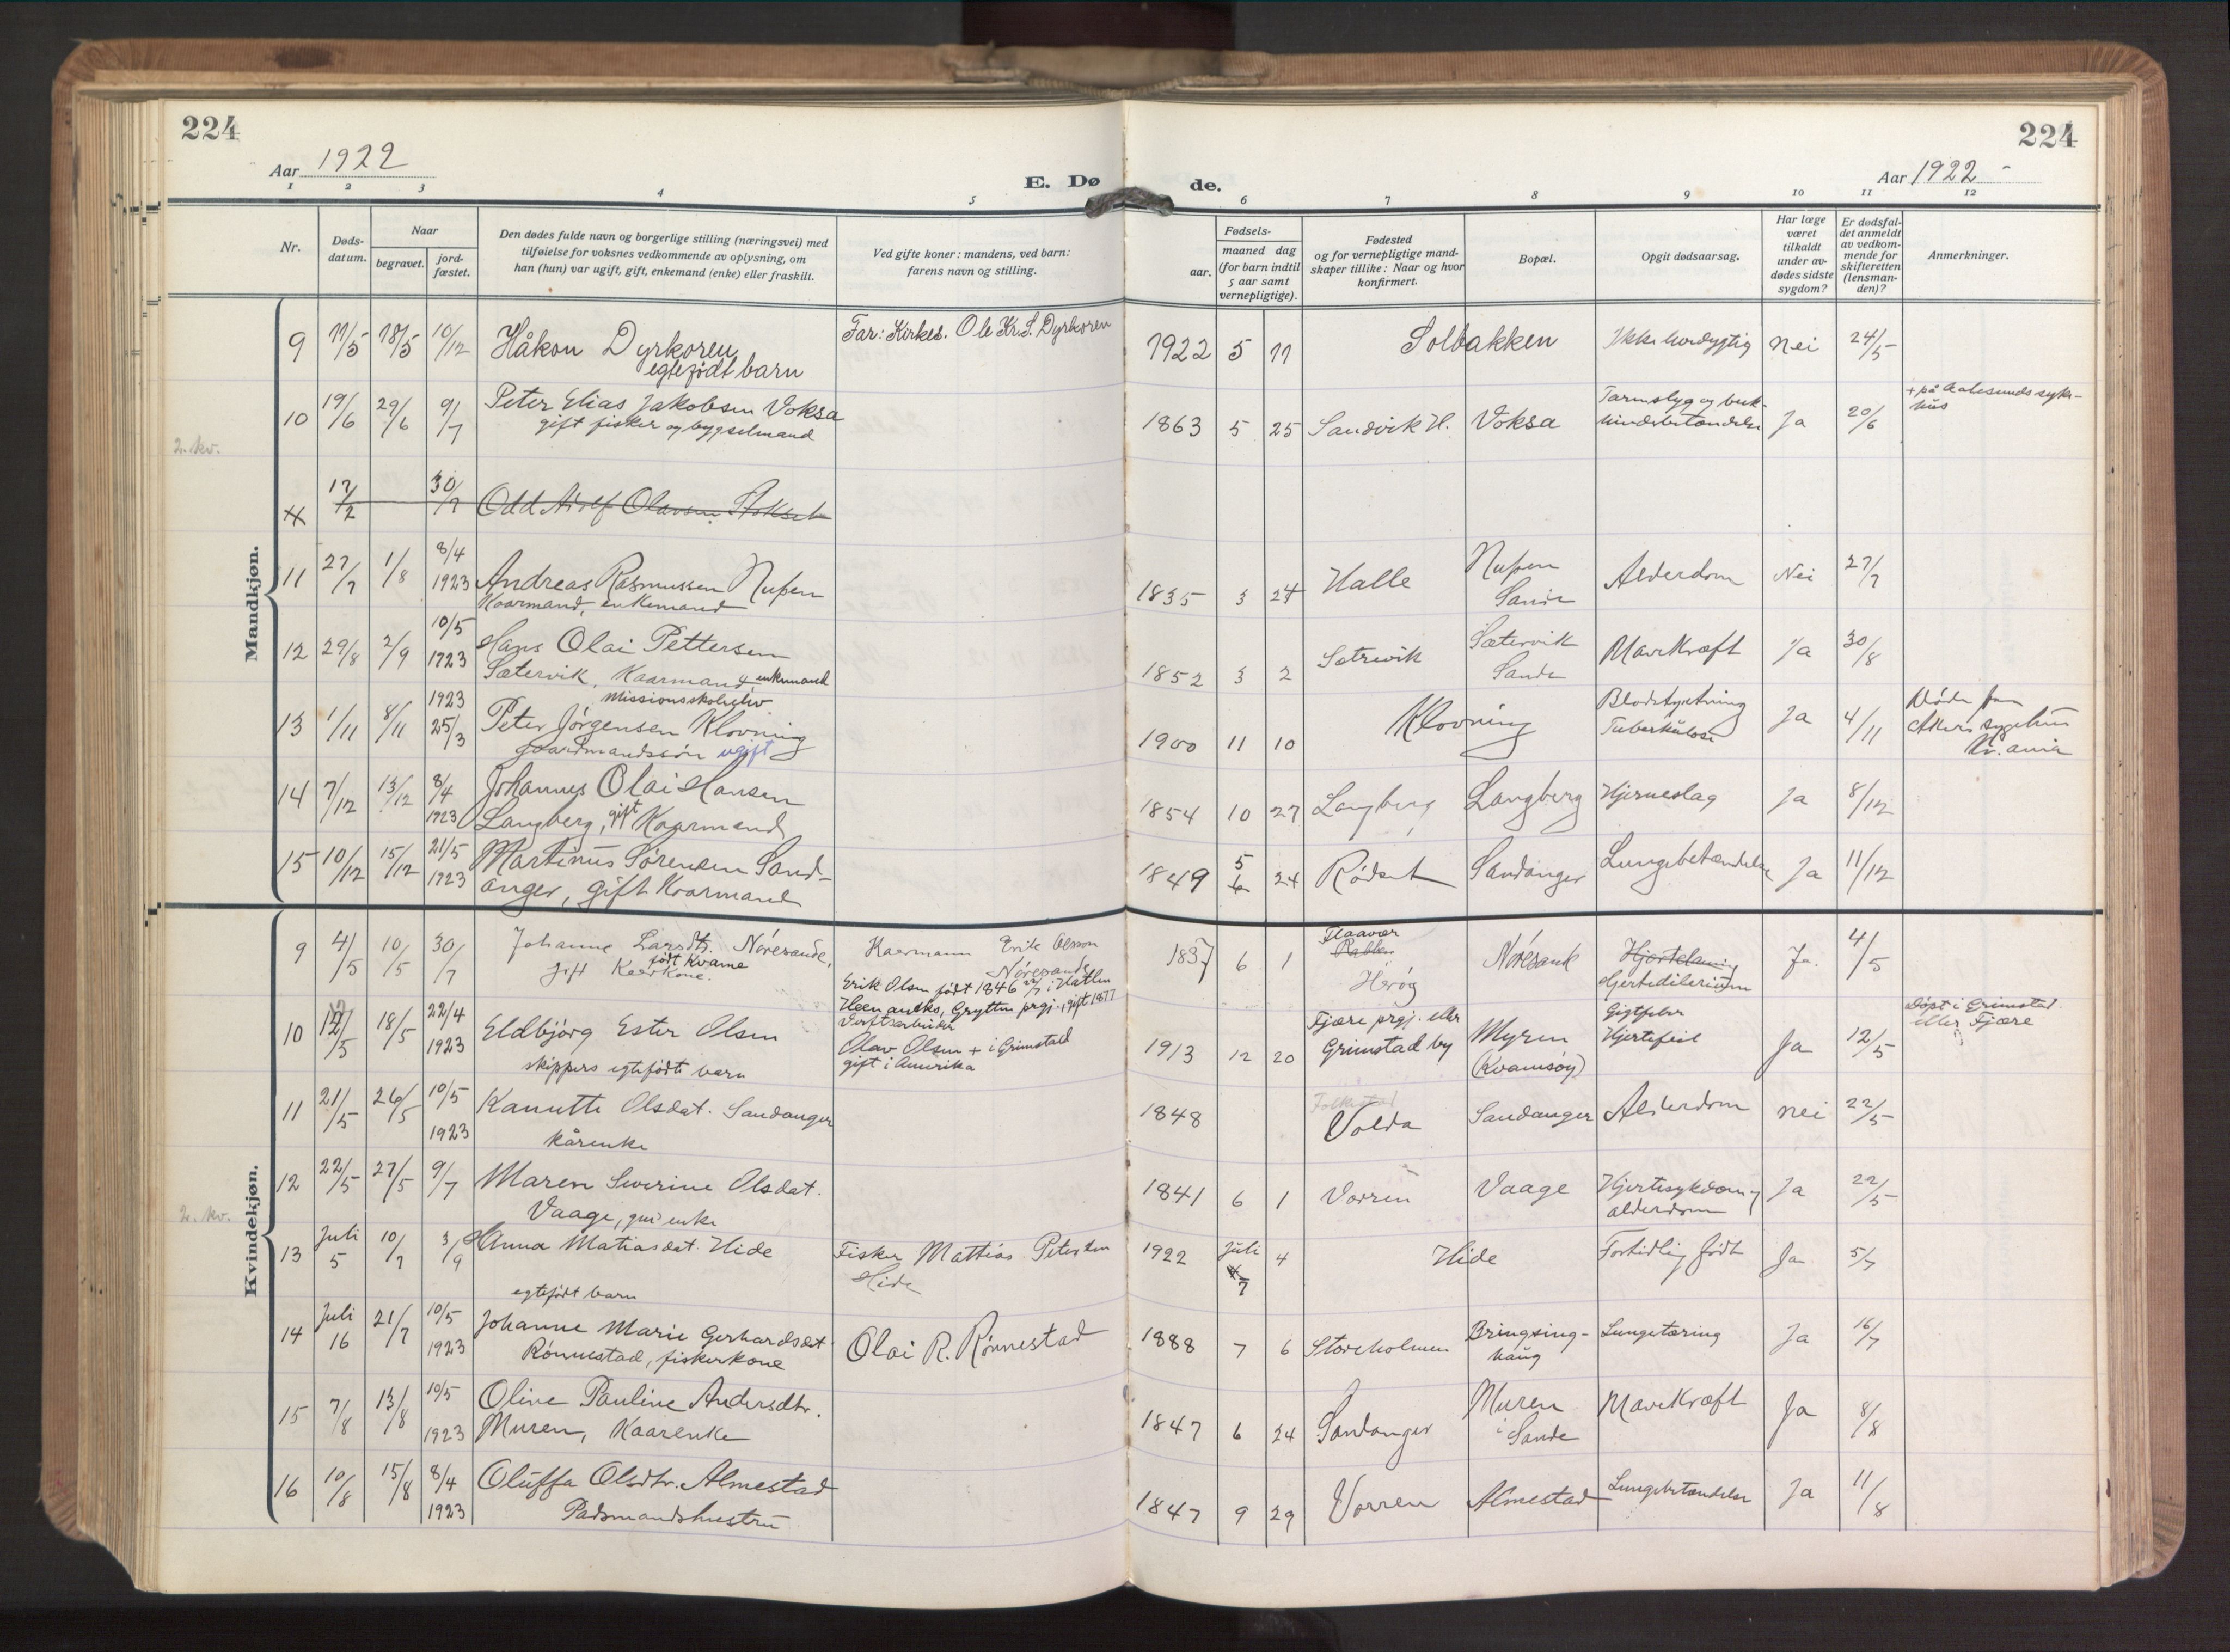 224
224
Aar 1922
E. Dø
de.
Aar 1922 -
1 2 3 4 5 6 7 8 9 10 11 12
Nr.
Døds-
datum.
Naar
begravet.
jord-
fæstet.
Den dødes fulde navn og borgerlige stilling (næringsvei) med
tilføielse for voksnes vedkommende av oplysning, om
han (hun) var ugift, gift, enkemand (enke) eller fraskilt.
Ved gifte koner: mandens, ved barn:
farens navn og stilling.
Fødsels-
aar.
maaned dag
(for barn indtil
5 aar samt
vernepligtige).
Fødested
og for vernepligtige mand-
skaper tillike: Naar og hvor
konfirmert.
Bopæl.
Opgit dødsaarsag.
Har læge
været
tilkaldt
under av-
dødes sidste
sygdom?
Er dødsfal-
det anmeldt
av vedkom-
mende for
skifteretten
(lensman-
den)?
Anmerkninger.
Mandkjøn.
9 11/5 18/5 10/12 Håkon Dyrkoren
egtefødt barn
Far: Kirkes. Ole Kr. S. Dyrkoren
1922 5 11 Solbakken Ikke levedygtig Nei 24/5
2. kv.
10 19/6 29/6 9/7 Peter Elias Jakobsen Voksa
gift fisker og bygselmand
1863 5 25 Sandvik H. Voksa Tarmslyng og buk-
hindebetændelse Ja 20/6
+ på Aalesunds syke-
hus
17/2 30/7 Odd Adolf Olavsen Stokset
11 27/7 1/8 8/4
1923 Andreas Rasmussen Nupen
Kaarmand, enkemand
1835 3 24 Halle Nupen
Sande Alderdom Nei 27/7
12 29/8 2/9 10/5
1923 Hans Olai Pettersen
Sætervik, Kaarmand, enkemand
1852 3 2 Sætrevik Sætervik
Sande Mavekræft Ja 30/8
13 1/11 8/11 1923
25/3 Missionsskoleelev
Peter Jörgensen Klovning
gaardmandssön ugift
1900 11 10 Klovning Blodstyrtning
Tuberkulose Ja 4/11
Döde paa
Akers sygehus
Kr.ania
14 7/12 13/12 8/4
1923 Johannes Olai Hansen
Langberg, gift Kaarmand
1854 10 27 Langberg Langberg Hjerneslag Ja 8/12
15 10/12 15/12 21/5
1923 Martinus Sørensen Sand-
anger, gift Kaarmand
1849 5 6 24 Rødset Sandanger Lungebetændelse Ja 11/12
Kvindekjøn.
9 4/5 10/5 30/7 Johanne Larsdtr. Nöresande,
født Kvame
gift Kaarkone.
Kaarmann Erik Olsson
Nöresande
Erik Olsen født 1846 22/7 i Hatlen
Heen anneks, Grytten prgj. gift 1877
1837 6 1 Flaavær
Rabben
Heröy Nöresande Hjertelamning
Hjertedilerium Ja. 4/5
10 12/5 18/5 22/4
1923 Eldbjörg Ester Olsen
skippers egtefödte barn
Verftsarbeider
Olav Olsen + i Grimstad
gift i Amerika
1913 12 20 Fjære prgj. eller
Grimstad by Myren
(Kvamsöy) Gigtfeber
Hjertefeil Ja 12/5
Döpt i Grimstad
eller Fjære
11 21/5 26/5 10/5
1923 Kanutte Olsdat. Sandanger
kårenke
1848 Folkestad
Volda Sandanger Alderdom nei 22/5
2. kv.
12 22/5 27/5 9/7 Maren Severine Olsdat.
Vaage, grd enke
1841 6 1 Vorren Vaage Hjertesykdom og
alderdom Ja 22/5
13 Juli
5 10/7 3/9 Anna Matiasdat. Hide
egtefödt barn
Fisker Mattias Petersen
Hide
1922 Juli
7 4 Hide Fortidlig födt Ja 5/7
14 Juli
16 21/7 10/5
1923 Johanne Marie Gerhardsdat
Rönnestad, fiskerkone
Olai R. Rönnestad
1888 7 6 Storeholmen Bringsing-
haug Lungetæring Ja 16/7
15 7/8 13/8 10/5
1923 Oline Pauline Andersdtr.
Muren, Kaarenke
1847 6 24 Sandanger Muren
i Sande Mavekræft Ja 8/8
16 10/8 15/8 8/4
1923 Oluffa Olsdtr. Almestad
Pladsmandshustru
1847 9 29 Vorren Almestad Lungebetændelse Ja 11/8